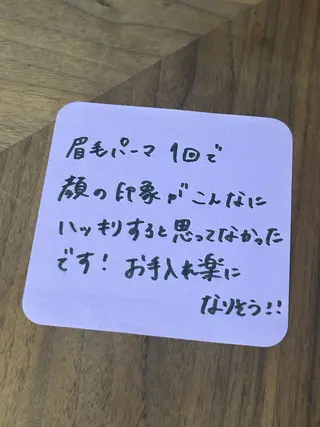 眉毛パーマ 1回で
顔の印象がこんなに
ハッキリすると思ってなかった
です！ お手入れ楽に
なりそう!!